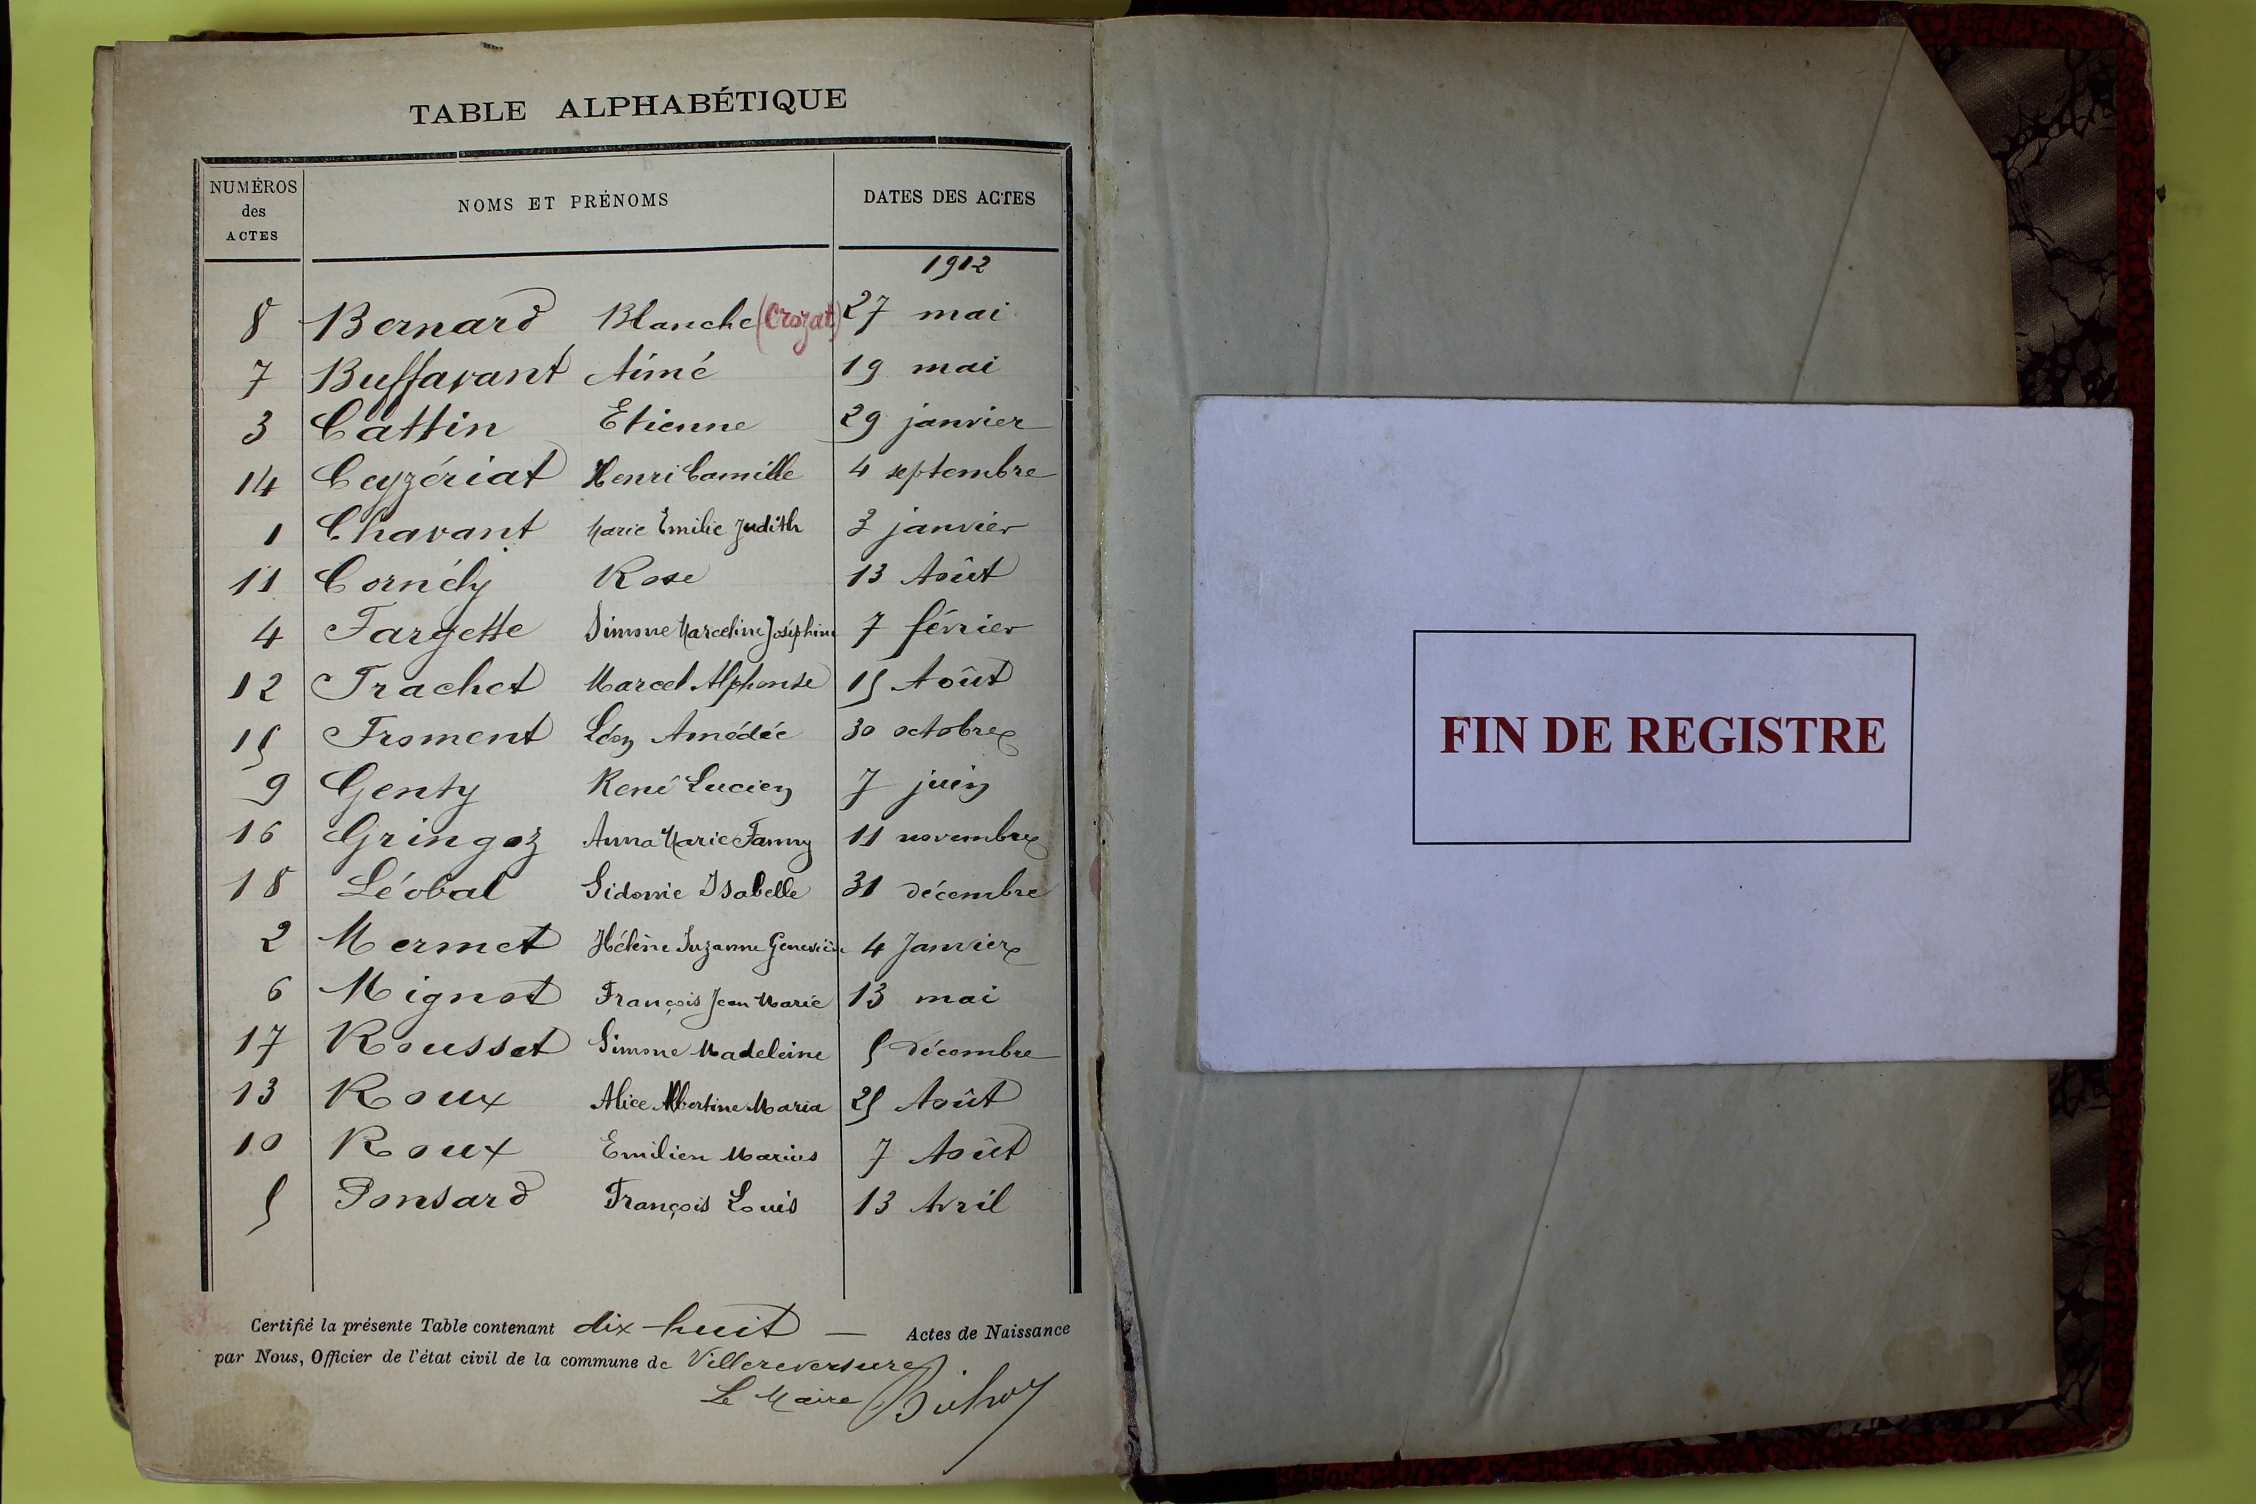 TABLE ALPHABÉTIQUE
NUMÉROS des ACTES NOMS ET PRÉNOMS DATES DES ACTES
1912
8 Bernard Blanche (Crozat) 27 mai
7 Buffavant Aimé 19 mai
3 Cattin Etienne 29 janvier
14 Ceyzériat Henri Camille 4 septembre
1 Chavant Marie Emilie Judith 3 janvier
11 Cornély Rose 13 Août
4 Fargette Simone Marceline Joséphine 7 février
12 Frachet Marcel Alphonse 15 Août
15 Froment Léon Amédée 30 octobre
9 Genty René Lucien 7 juin
16 Gringoz Anna Marie Fanny 11 novembre
18 Léobal Sidonie Isabelle 31 décembre
2 Mermet Hélène Suzanne Geneviève 4 Janvier
6 Mignot François Jean Marie 13 mai
17 Rousset Simone Madeleine 5 décembre
13 Roux Alice Albertine Maria 25 Août
10 Roux Emilien Marius 7 Août
5 Ponsard François Louis 13 Avril
Certifié la présente Table contenant dix-huit — Actes de Naissance
par Nous, Officier de l'état civil de la commune de Villereversure.
Le Maire
FIN DE REGISTRE